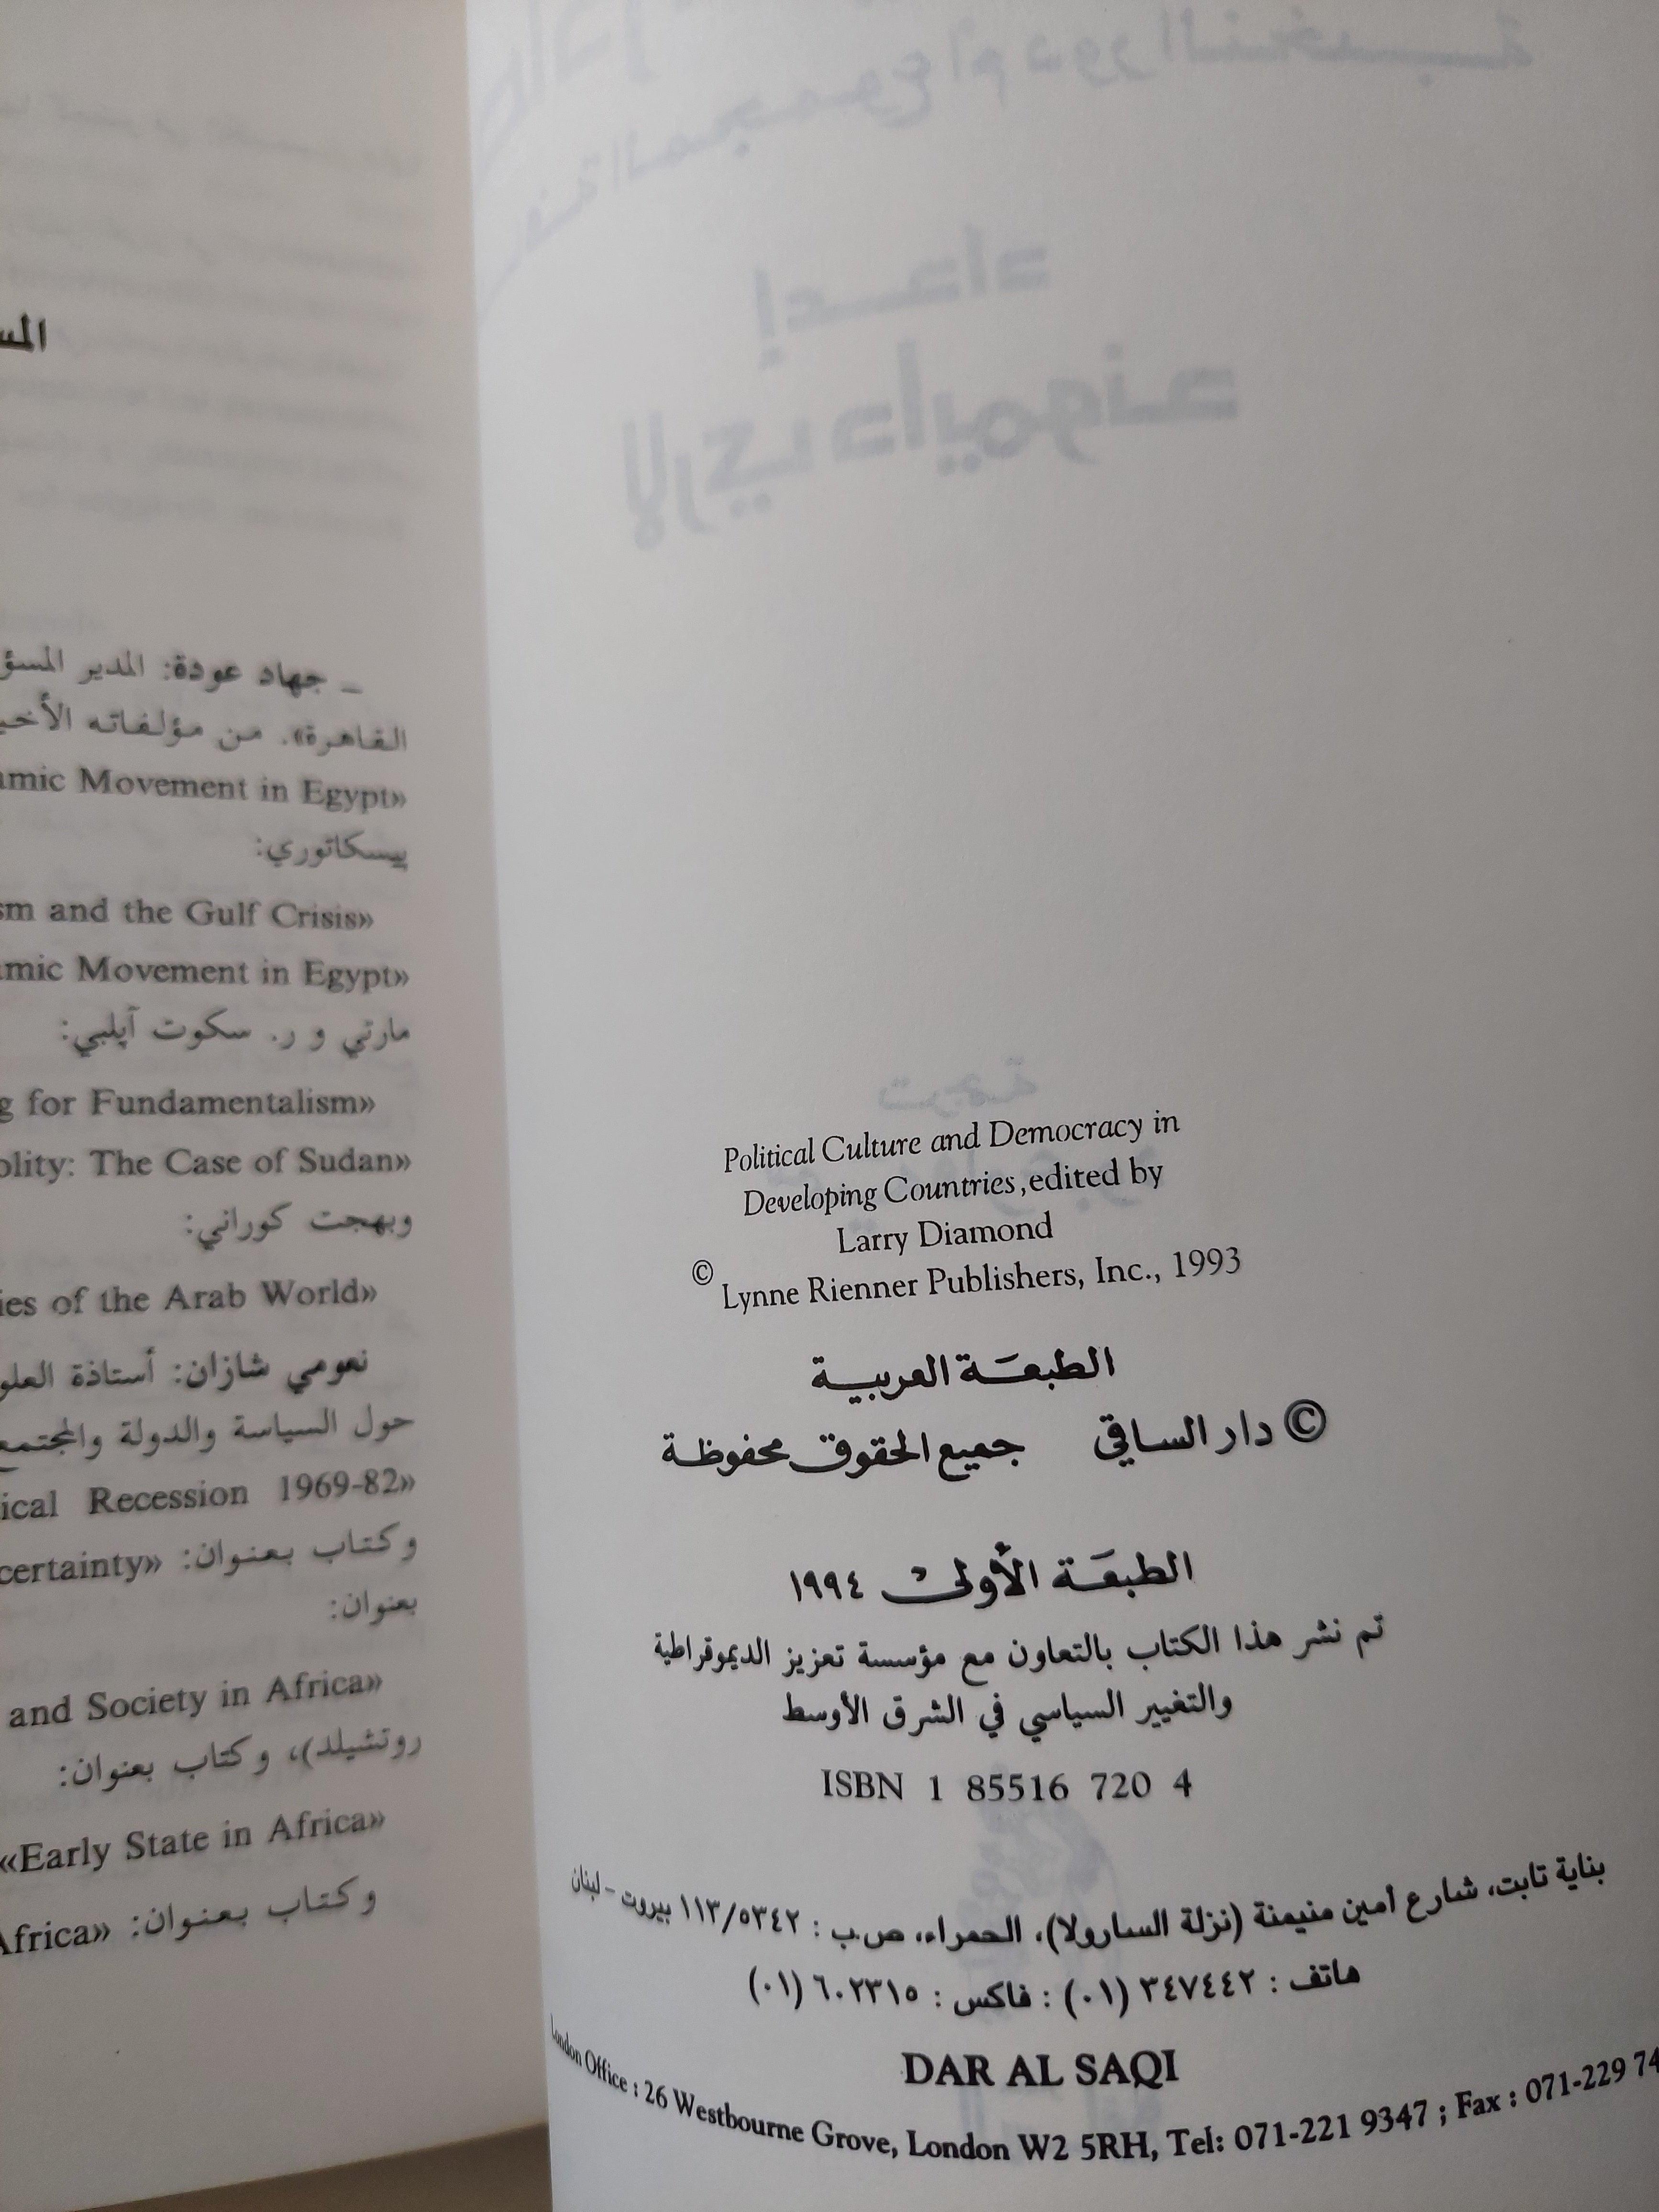 Political Culture and Democracy in
Developing Countries, edited by
Larry Diamond
© Lynne Rienner Publishers, Inc., 1993
الطبعة العربية
© دار الساقي جميع الحقوق محفوظة
الطبعة الأولى ١٩٩٤
تم نشر هذا الكتاب بالتعاون مع مؤسسة تعزيز الديموقراطية
والتغيير السياسي في الشرق الأوسط
ISBN 1 85516 720 4
بناية تابت، شارع أمين منيمنة (نزلة السارولا)، الحمراء، ص.ب : ١١٣/٥٣٤٢ بيروت - لبنان
هاتف : ٣٤٧٤٤٢ (٠١) : فاكس : ٦٠٢٣١٥ (٠١)
DAR AL SAQI
London Office : 26 Westbourne Grove, London W2 5RH, Tel: 071-221 9347 ; Fax : 071-229 74
ـ جهاد عودة: المدير
القاهرة». من مؤلفاته
Movement in Egypt»
پيسكاتوري:
and the Gulf Crisis»
Movement in Egypt»
مارتي و ر. سكوت آپلبي:
for Fundamentalism»
The Case of Sudan»
وبهجت كوراني:
of the Arab World»
نعومي شازان: أستاذة
حول السياسة والدولة
Recession 1969-82»
وكتاب بعنوان:
بعنوان:
and Society in Africa»
روتشيلد)، وكتاب بعنوان:
«Early State in Africa»
وكتاب بعنوان: Africa»